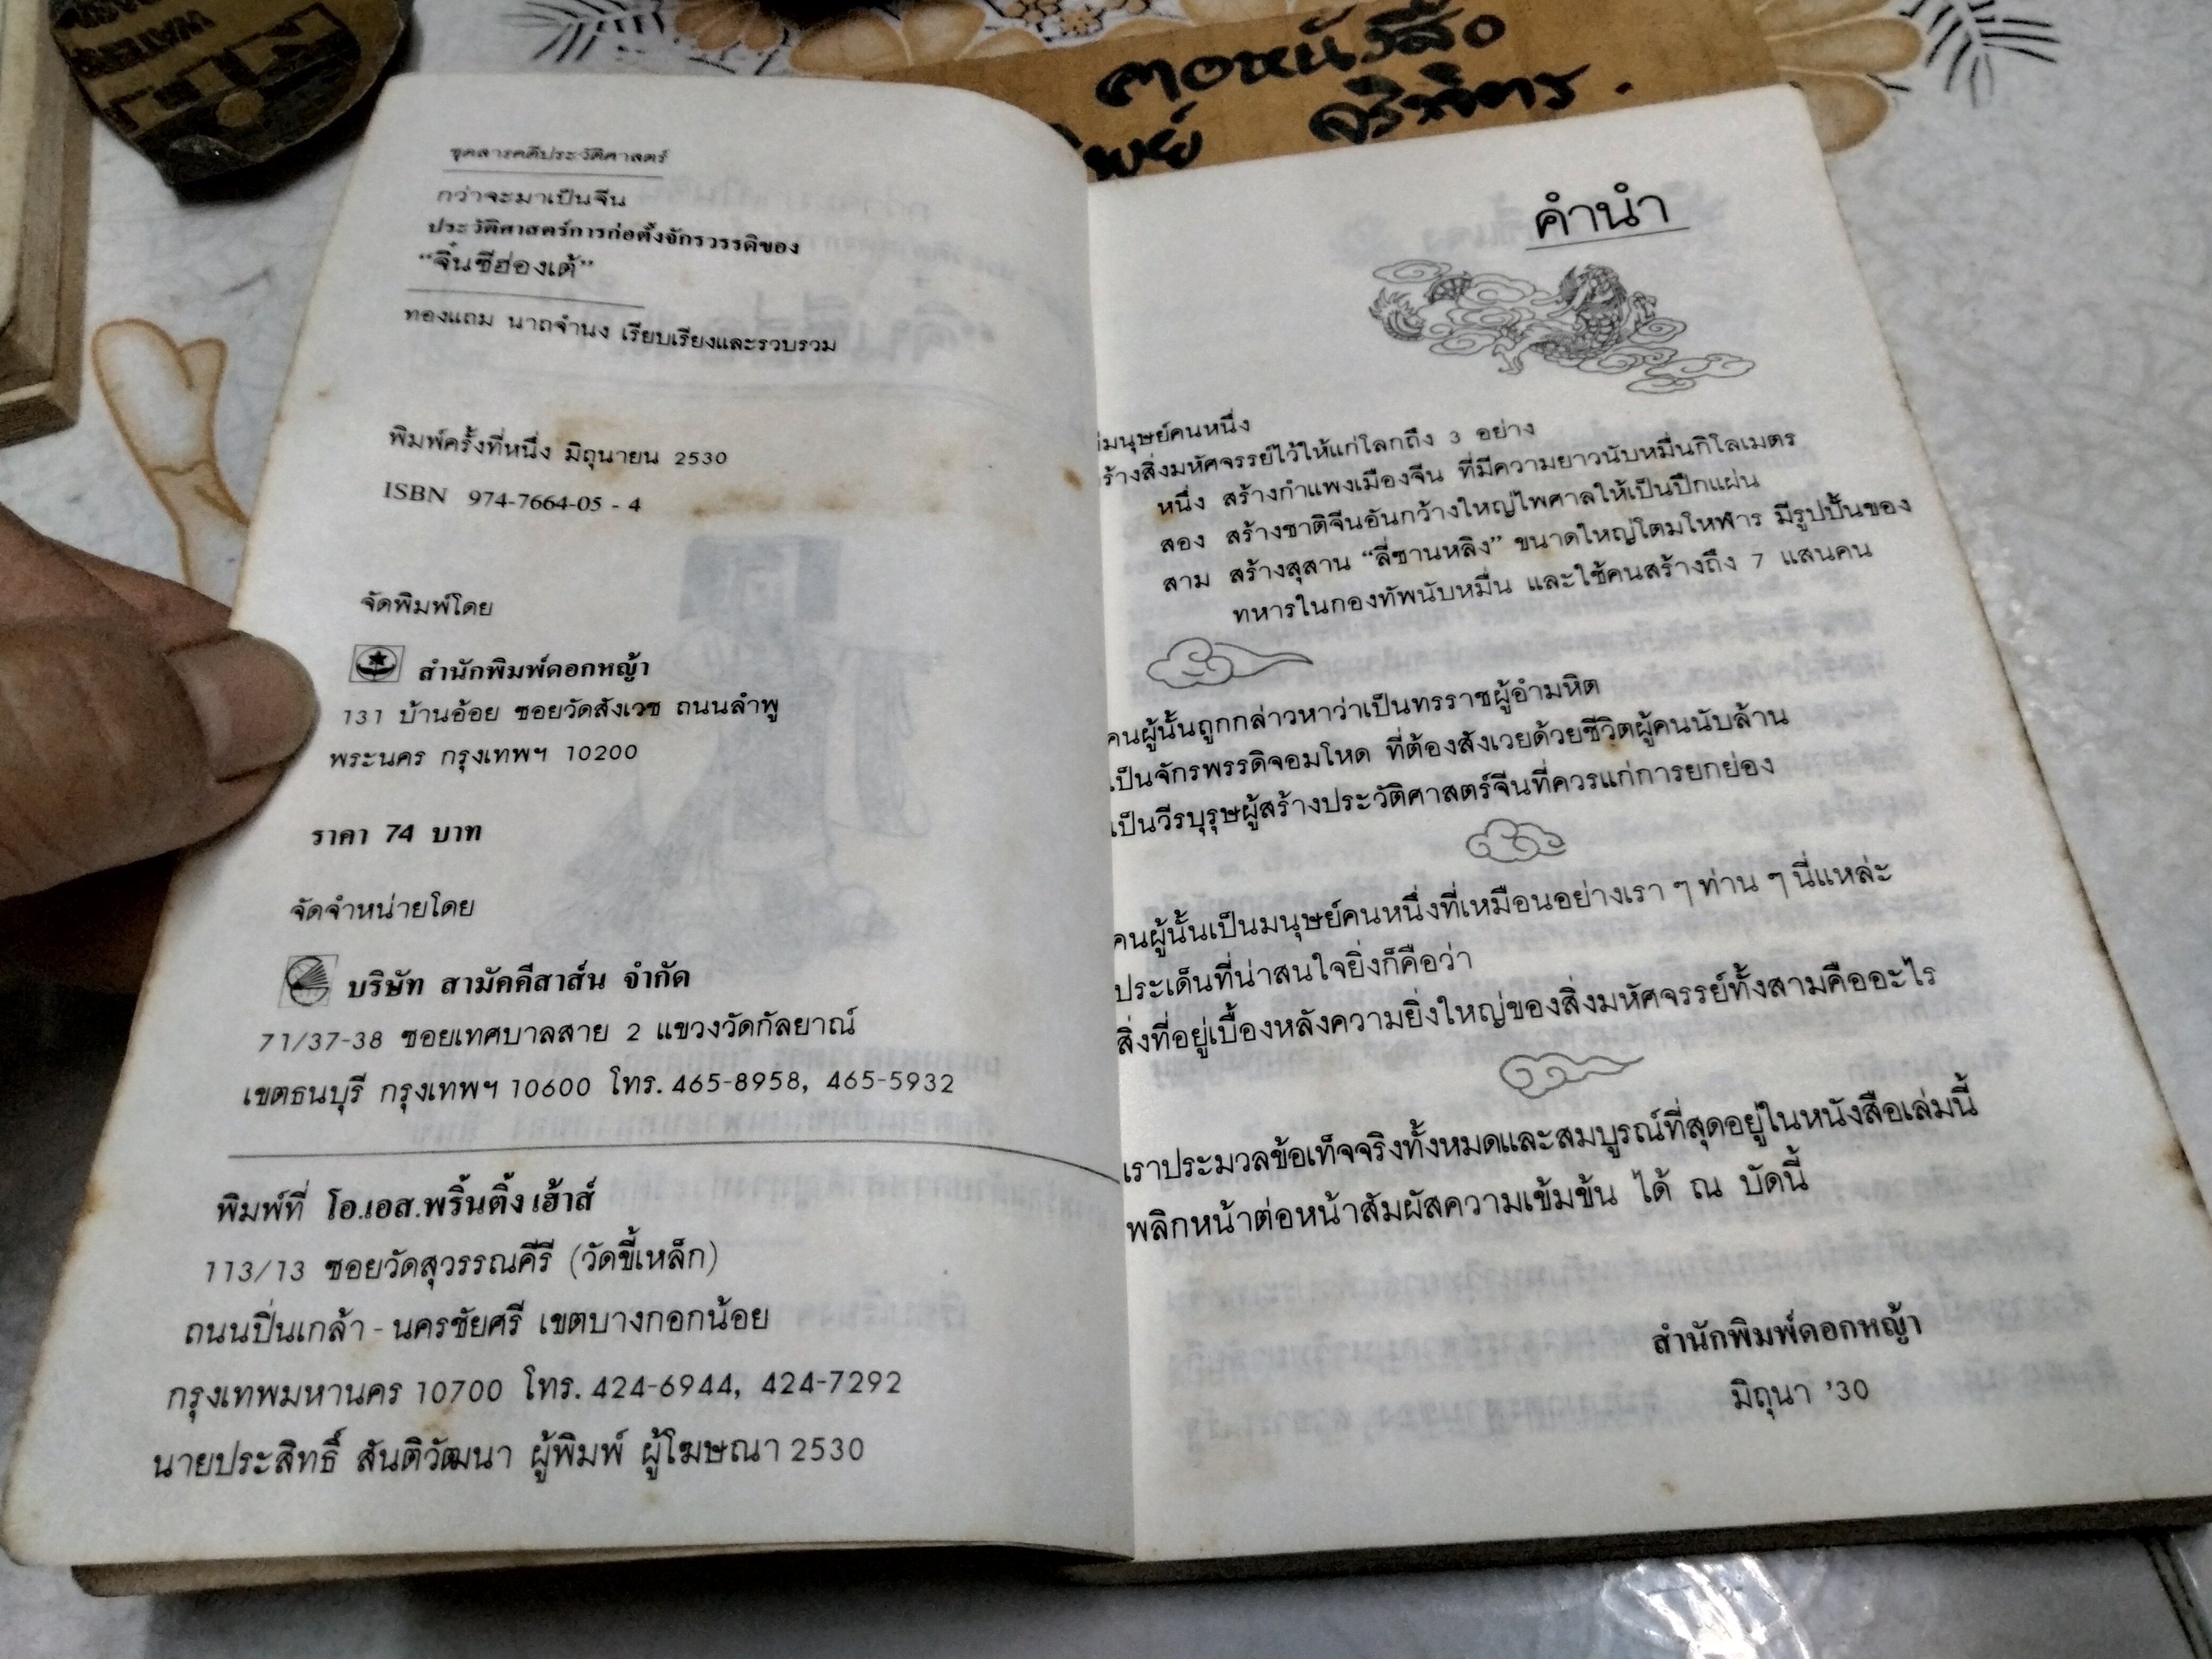 ชุดสารคดีประวัติศาสตร์
กว่าจะมาเป็นจีน
ประวัติศาสตร์การก่อตั้งจักรวรรดิของ
“จิ๋นซีฮ่องเต้”
ทองแถม นาถจำนง เรียบเรียงและรวบรวม
พิมพ์ครั้งที่หนึ่ง มิถุนายน 2530
ISBN 974-7664-05 - 4
จัดพิมพ์โดย
สำนักพิมพ์ดอกหญ้า
131 บ้านอ้อย ซอยวัดสังเวช ถนนลำพู
พระนคร กรุงเทพฯ 10200
ราคา 74 บาท
จัดจำหน่ายโดย
บริษัท สามัคคีสาส์น จำกัด
71/37-38 ซอยเทศบาลสาย 2 แขวงวัดกัลยาณ์
เขตธนบุรี กรุงเทพฯ 10600 โทร. 465-8958, 465-5932
พิมพ์ที่ โอ.เอส.พริ้นติ้ง เฮ้าส์
113/13 ซอยวัดสุวรรณคีรี (วัดขี้เหล็ก)
ถนนปิ่นเกล้า - นครชัยศรี เขตบางกอกน้อย
กรุงเทพมหานคร 10700 โทร. 424-6944, 424-7292
นายประสิทธิ์ สันติวัฒนา ผู้พิมพ์ ผู้โฆษณา 2530
คำนำ
มนุษย์คนหนึ่ง
ร้างสิ่งมหัศจรรย์ไว้ให้แก่โลกถึง 3 อย่าง
หนึ่ง สร้างกำแพงเมืองจีน ที่มีความยาวนับหมื่นกิโลเมตร
สอง สร้างชาติจีนอันกว้างใหญ่ไพศาลให้เป็นปึกแผ่น
สาม สร้างสุสาน “ลี่ซานหลิง” ขนาดใหญ่โตมโหฬาร มีรูปปั้นของ
ทหารในกองทัพนับหมื่น และใช้คนสร้างถึง 7 แสนคน
คนผู้นั้นถูกกล่าวหาว่าเป็นทรราชผู้อำมหิต
เป็นจักรพรรดิจอมโหด ที่ต้องสังเวยด้วยชีวิตผู้คนนับล้าน
เป็นวีรบุรุษผู้สร้างประวัติศาสตร์จีนที่ควรแก่การยกย่อง
คนผู้นั้นเป็นมนุษย์คนหนึ่งที่เหมือนอย่างเรา ๆ ท่าน ๆ นี่แหล่ะ
ประเด็นที่น่าสนใจยิ่งก็คือว่า
สิ่งที่อยู่เบื้องหลังความยิ่งใหญ่ของสิ่งมหัศจรรย์ทั้งสามคืออะไร
เราประมวลข้อเท็จจริงทั้งหมดและสมบูรณ์ที่สุดอยู่ในหนังสือเล่มนี้
พลิกหน้าต่อหน้าสัมผัสความเข้มข้น ได้ ณ บัดนี้
สำนักพิมพ์ดอกหญ้า
มิถุนา ’30